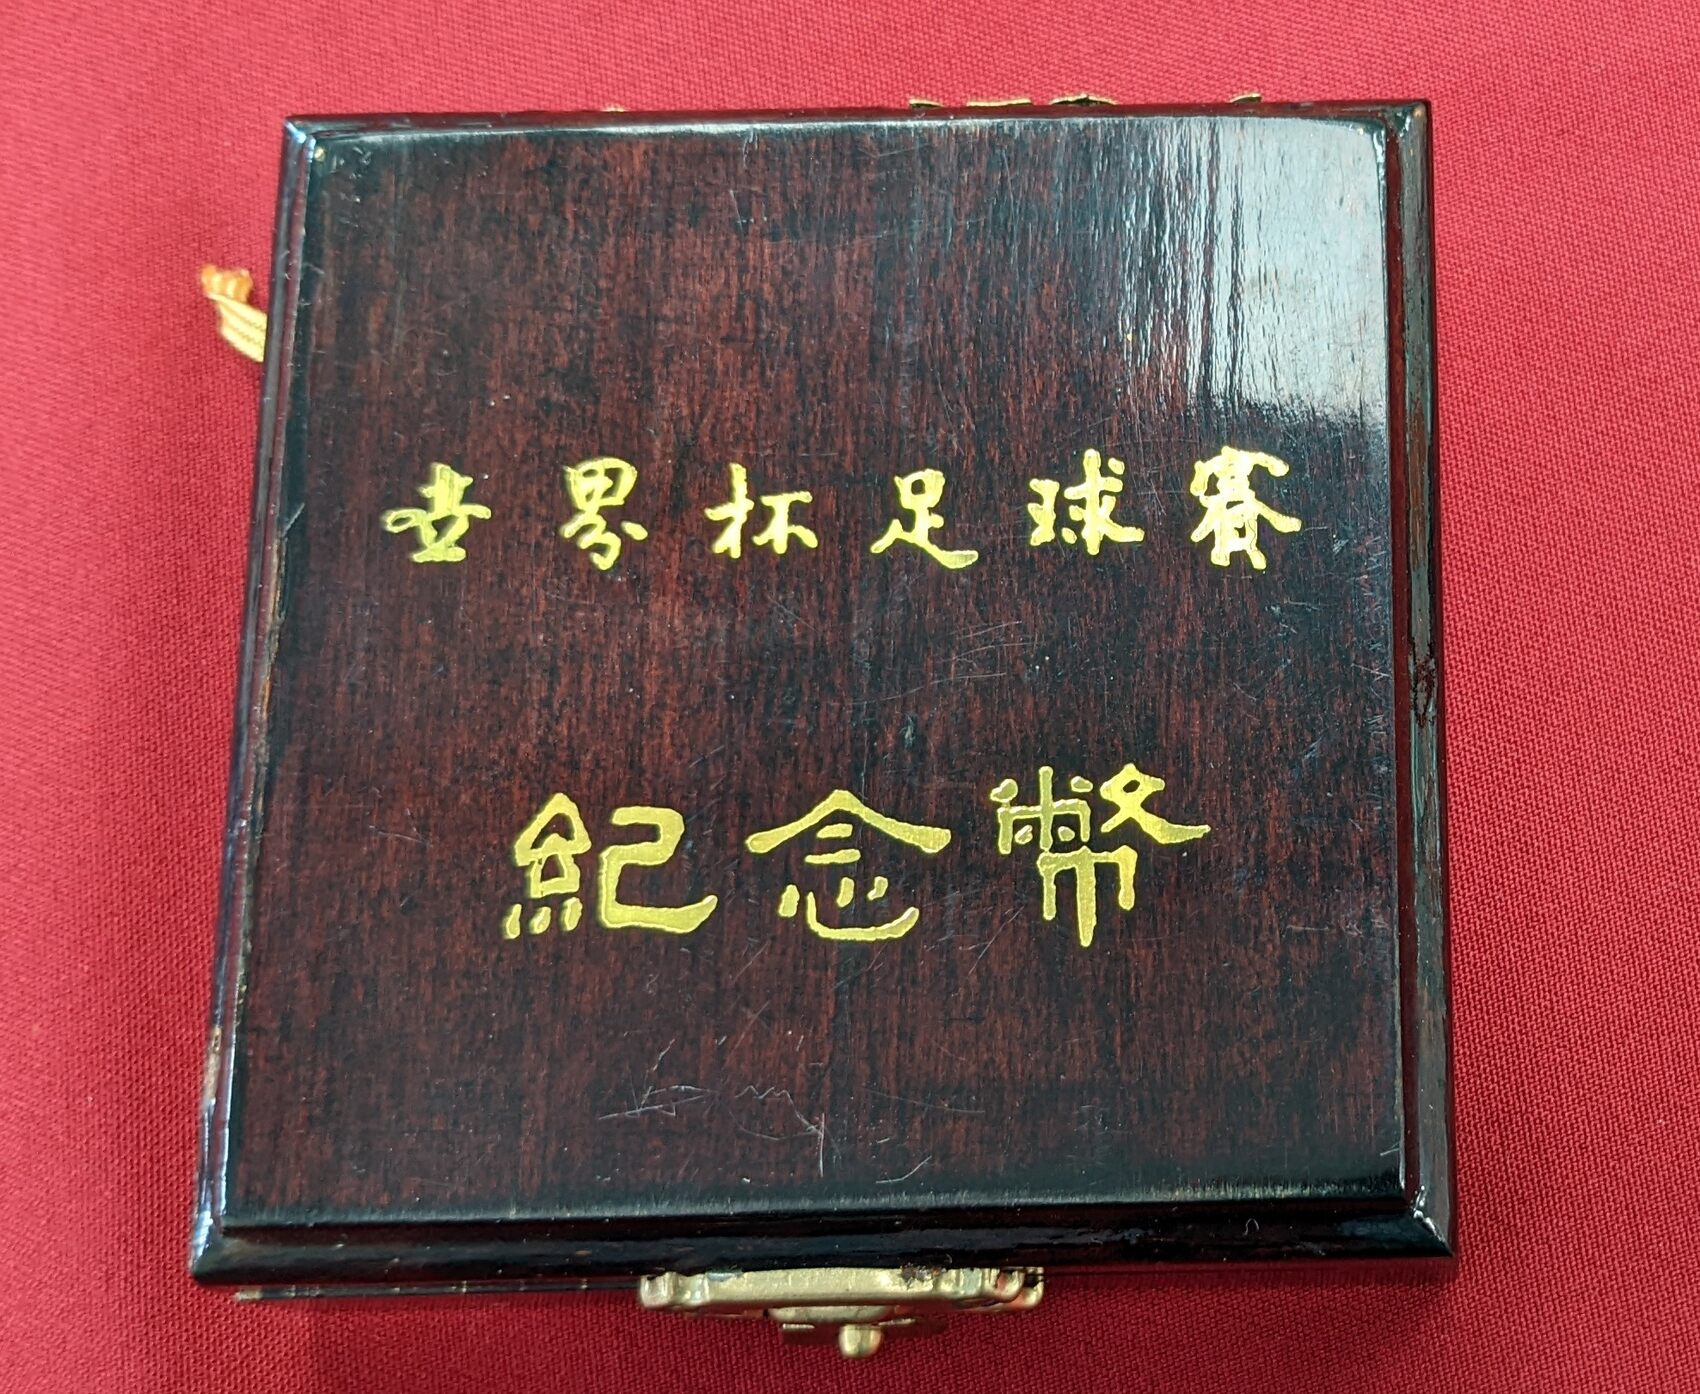 世界杯足球賽
紀念幣